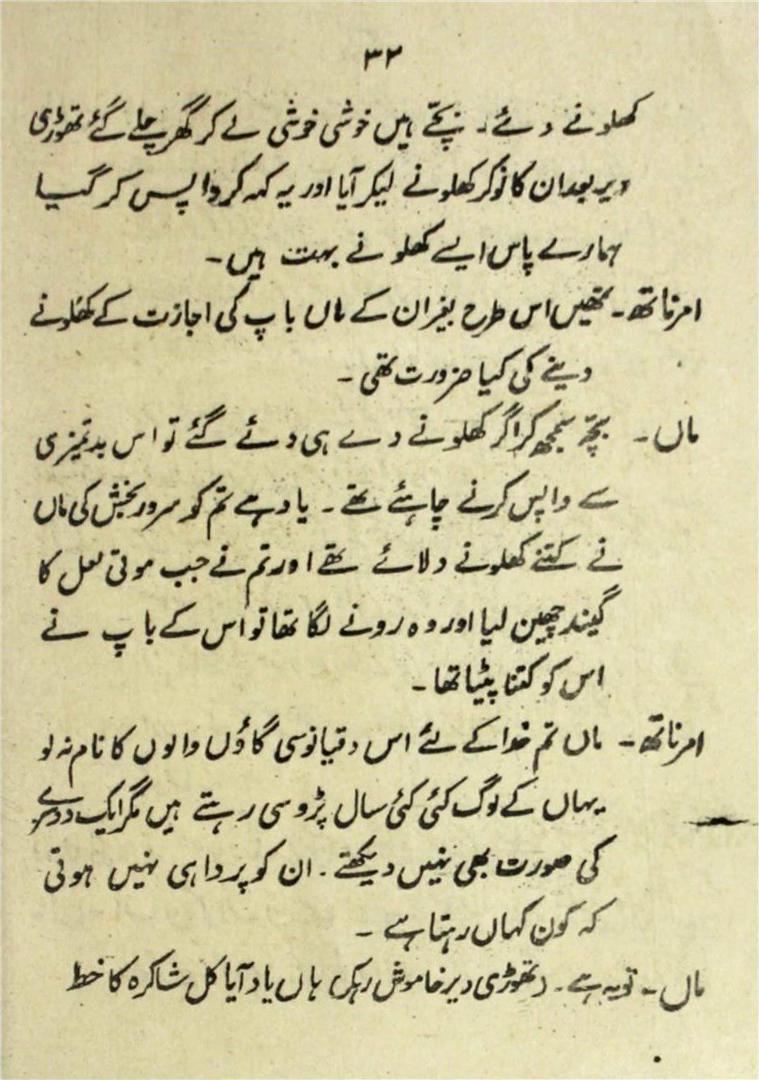 ۳۲
کھلونے دئے۔ بچے ہیں خوشی خوشی لے کر گھر چلے گئے تھوڑی
دیر بعد ان کا نوکر کھلونے لیکر آیا اور یہ کہہ کر واپس کر گیا
ہمارے پاس ایسے کھلونے بہت ہیں۔
امرناتھ۔ تمھیں اس طرح بغیر ان کے ماں باپ کی اجازت کے کھلونے
دینے کی کیا ضرورت تھی۔
ماں۔ بچہ سمجھ کر اگر کھلونے دے ہی دئے گئے تو اس بدتمیزی
سے واپس کرنے چاہئے تھے۔ یاد ہے تم کو سرور بخش کی ماں
نے کتنے کھلونے دلائے تھے اور تم نے جب موتی لعل کا
گیند چھین لیا اور وہ رونے لگا تھا تو اس کے باپ نے
اس کو کتنا پیٹا تھا۔
امرناتھ۔ ماں تم خدا کے لئے اس دقیانوسی گاؤں والوں کا نام نہ لو
یہاں کے لوگ کئی کئی سال پڑوسی رہتے ہیں مگر ایک دوسرے
کی صورت بھی نہیں دیکھتے۔ ان کو پروا ہی نہیں ہوتی
کہ کون کہاں رہتا ہے۔
ماں۔ توبہ ہے۔ (تھوڑی دیر خاموش رہکر) ہاں یاد آیا کل شاکرہ کا خط